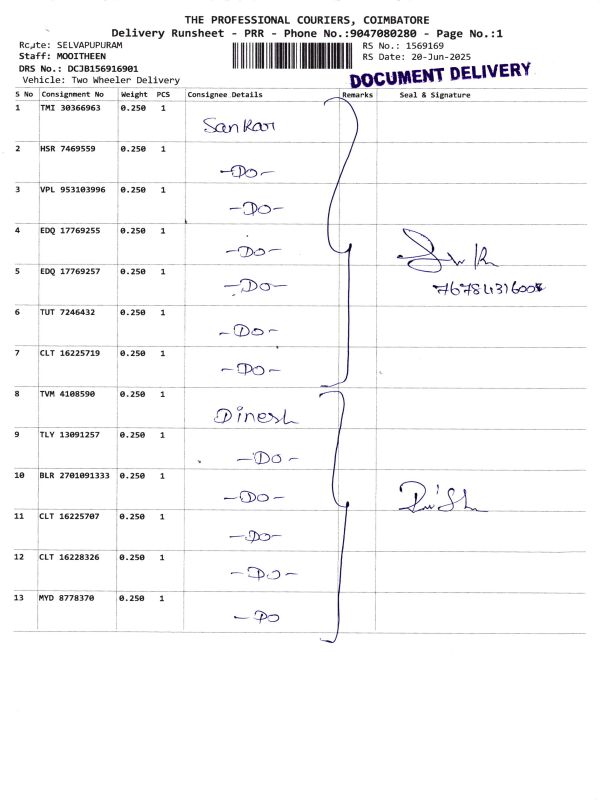 THE PROFESSIONAL COURIERS, COIMBATORE
Delivery Runsheet - PRR - Phone No.:9047080280 - Page No.:1
Route: SELVAPUPURAM
RS No.: 1569169
Staff: MOOITHEEN
RS Date: 20-Jun-2025
DRS No.: DCJB156916901
DOCUMENT DELIVERY
Vehicle: Two Wheeler Delivery
S No Consignment No Weight PCS Consignee Details Remarks Seal & Signature
1 TMI 30366963 0.250 1
Sankar
2 HSR 7469559 0.250 1
-Do-
3 VPL 953103996 0.250 1
-Do-
4 EDQ 17769255 0.250 1
-Do-
5 EDQ 17769257 0.250 1
-Do-
6 TUT 7246432 0.250 1
-Do-
7 CLT 16225719 0.250 1
-Do-
8 TVM 4108590 0.250 1
Dinesh
9 TLY 13091257 0.250 1
-Do-
10 BLR 2701091333 0.250 1
-Do-
11 CLT 16225707 0.250 1
-Do-
12 CLT 16228326 0.250 1
-Do-
13 MYD 8778370 0.250 1
-Do